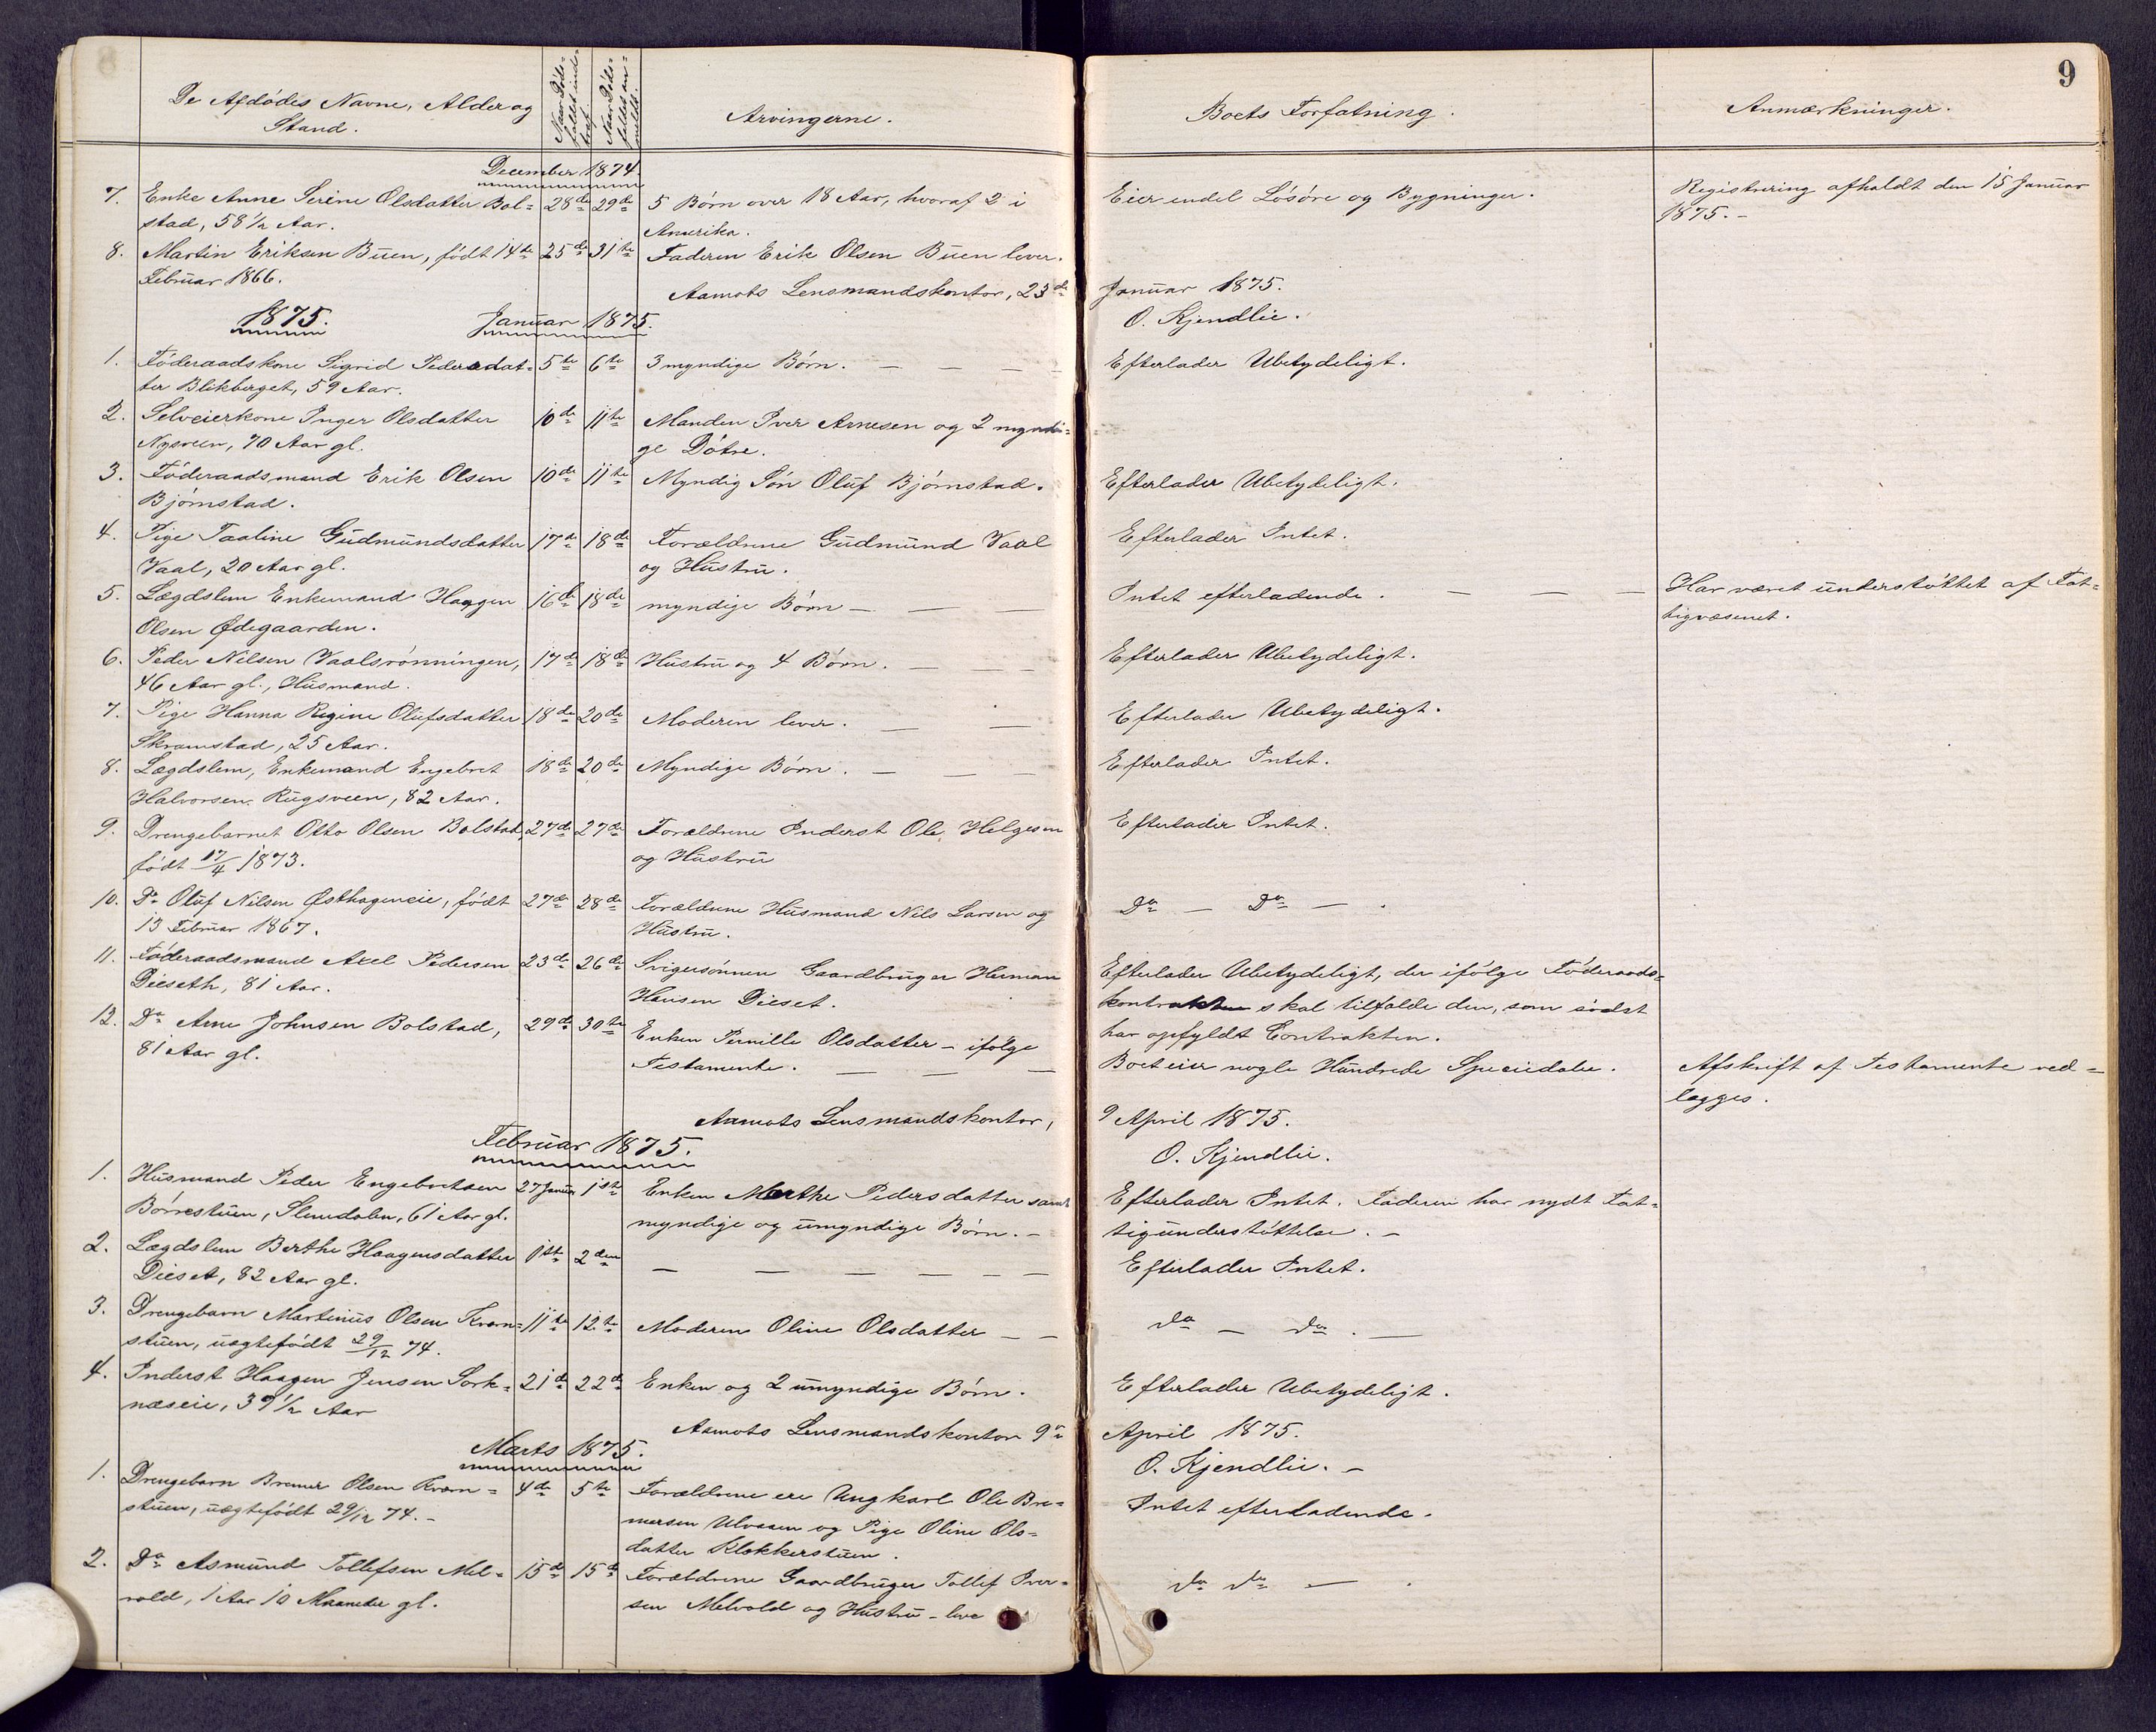 8
9
De Afdødes Navne, Alder og
Stand.
Naar Døds=
faldet ind=
traf.
Naar Døds=
faldet an=
meldt.
Arvingerne.
Boets Forfatning.
Anmærkninger.
December 1874.
7. Enke Anne Serine Olsdatter Bol= 28de 29de 5 Børn over 18 Aar, hvoraf 2 i Eier endel Løsøre og Bygninger. Registrering afholdt den 15 Januar
stad, 58 1/2 Aar. Amerika. 1875.-
8. Martin Eriksen Buen, født 14de 25de 31te Faderen Erik Olsen Buen lever.
Februar 1866. Aamots Lensmandskontor, 23de Januar 1875.
O. Kjendlie.
1875. Januar 1875.
1. Føderaadskone Sigrid Pedersdat= 5te 6te 3 myndige Børn. Efterlader Ubetydeligt.
ter Blikberget, 59 Aar.
2. Selveierkone Inger Olsdatter 10de 11te Manden Iver Arnesen og 2 myndi=
Nysveen, 70 Aar gl. ge Døtre.
3. Føderaadsmand Erik Olsen 10de 11te Myndig Søn Oluf Bjørnstad. Efterlader Ubetydeligt.
Bjørnstad.
4. Pige Taaline Gudmundsdatter 17de 18de Forældrene Gudmund Vaal Efterlader Intet.
Vaal, 20 Aar gl. og Hustru.
5. Lægdslem Enkemand Haagen 16de 18de myndige Børn — Intet efterladende. Har været understøttet af Fat=
Olsen Ødegaarden. tigvæsenet.
6. Peder Nilsen Vaalsrønningen, 17de 18de Hustru og 4 Børn. Efterlader Ubetydeligt.
46 Aar gl., Husmand.
7. Pige Hanna Regine Olufsdatter 18de 20de Moderen lever. Efterlader Ubetydeligt.
Skramstad, 25 Aar.
8. Lægdslem, Enkemand Engebret 18de 20de Myndige Børn. Efterlader Intet.
Halvorsen Rugsveen, 82 Aar.
9. Drengebarnet Otto Olsen Bolstad, 27de 27de Forældrene Inderst Ole Helgesen Efterlader Intet.
født 17/4 1873. og Hustru
10. Do Oluf Nilsen Østhageneie, født 27de 28de Forældrene Husmand Nils Larsen og Do — Do — .
13 Februar 1867. Hustru.
11. Føderaadsmand Axel Pedersen 23de 26de Svigersønnen Gaardbruger Herman Efterlader Ubetydeligt, der ifølge Føderaads=
Dieseth, 81 Aar. Hansen Dieset. kontrakten skal tilfalde den, som sidst
har opfyldt Contrakten.
12. Do Arne Johnsen Bolstad, 29de 30te Enken Pernille Olsdatter - ifølge Boet eier nogle Hundrede Speciedaler. Afskrift af Testamente ved=
81 Aar gl. Testamente. lægges.
Aamots Lensmandskontor, 9 April 1875.
O. Kjendlie.
Februar 1875.
1. Husmand Peder Engebretsen 27 Januar 1ste Enken Marthe Pedersdatter samt Efterlader Intet. Faderen har nydt Fat=
Børrestuen, Slemdalen, 61 Aar gl. myndige og umyndige Børn. - tigunderstøttelse. -
2. Lægdslem Berthe Haagensdatter 1ste 2den — Efterlader Intet.
Dieset, 82 Aar gl.
3. Drengebarn Martinus Olsen Kvern= 11te 12te Moderen Oline Olsdatter — do — do. —
stuen, uægtefødt 29/12 74.
4. Inderst Haagen Jensen Sork= 21de 22de Enken og 2 umyndige Børn. Efterlader Ubetydeligt.
næseie, 39 1/2 Aar
Aamots Lensmandskontor 9de April 1875.
O. Kjendlie. -
Marts 1875.
1. Drengebarn Bremer Olsen Kvern= 4de 5te Forældrene ere Ungkarl Ole Bre= Intet efterladende.
stuen, uægtefødt 29/12 74. - mersen Ulvaaen og Pige Oline Ols=
datter Klokkerstuen.
2. Do Asmund Tollefsen Mel= 15de 15de Forældrene Gaardbruger Tollef Iver= do do — .
vold, 1 Aar 10 Maaneder gl. sen Melvold og Hustru - leve